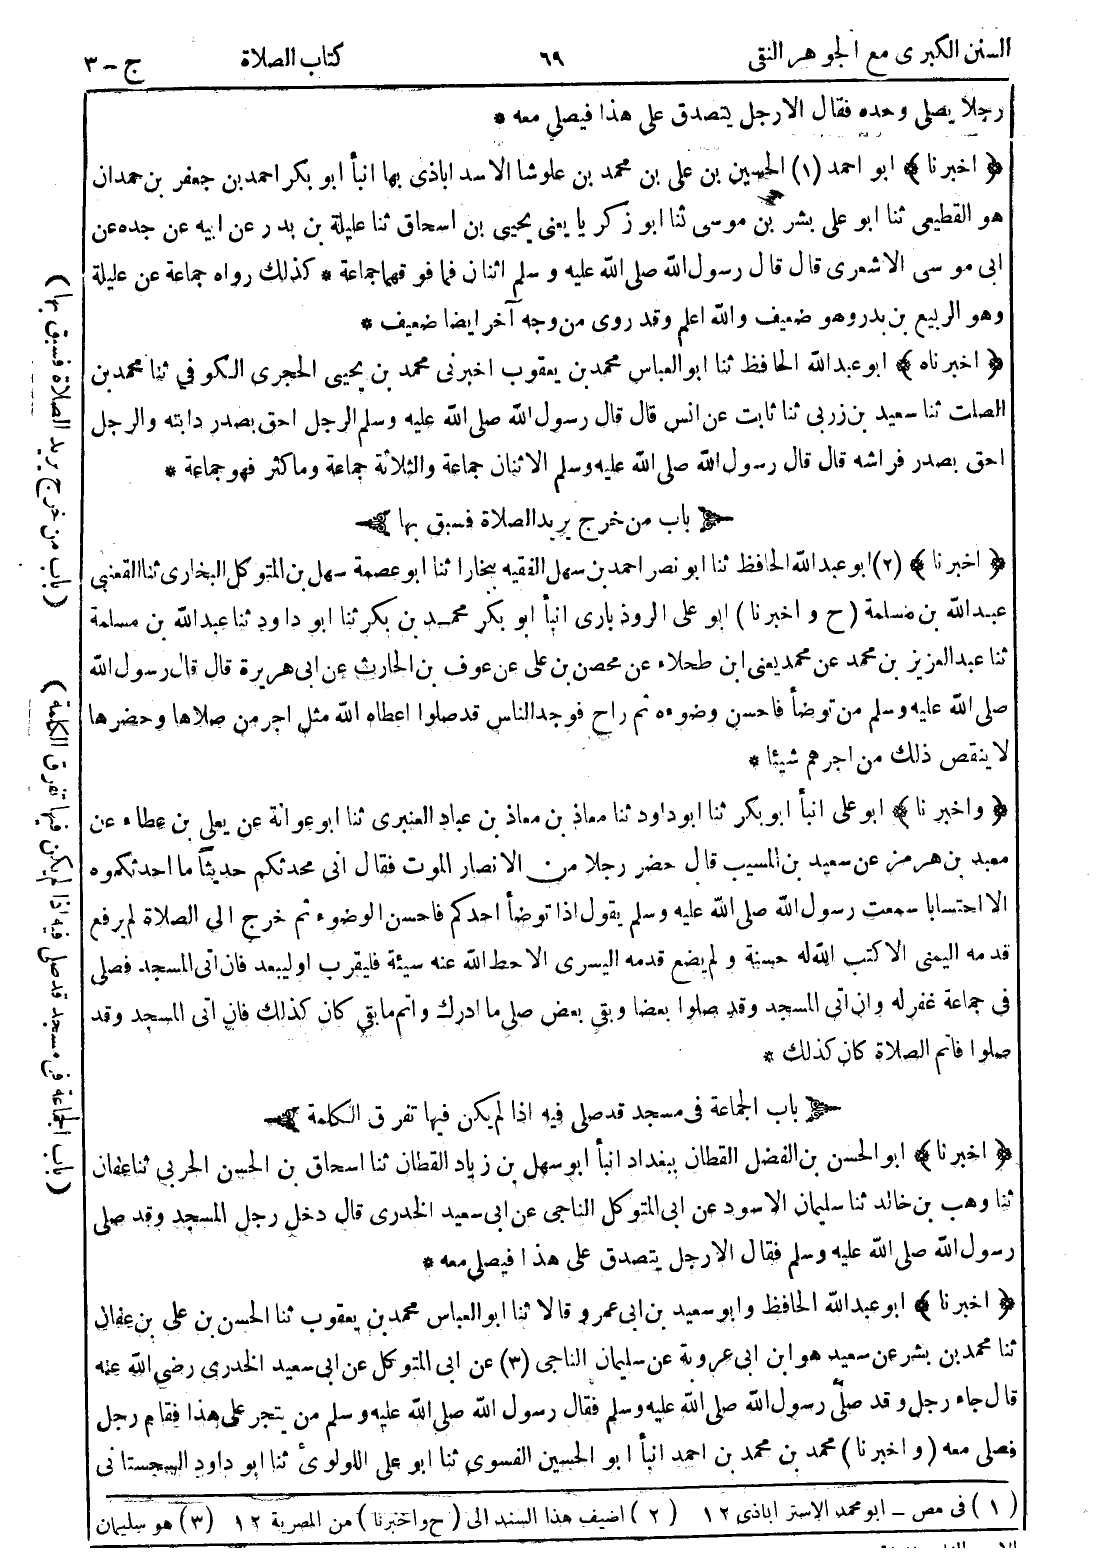 السنن الكبرى مع الجوهر النقى ٦٩ كتاب الصلاة ج-٣
رجلا يصلى وحده فقال الا رجل يتصدق على هذا فيصلى معه *
﴿ اخبرنا ﴾ ابو احمد (١) الحسين بن على بن محمد بن علوشا الاسد اباذى بها انبأ ابو بكر احمد بن جعفر بن حمدان
هو القطيعى ثنا ابو على بشر بن موسى ثنا ابو زكريا يعنى يحيى بن اسحاق ثنا عليلة بن بدر عن ابيه عن جده عن
ابى موسى الاشعرى قال قال رسول الله صلى الله عليه وسلم اثنان فما فوقهما جماعة * كذلك رواه جماعة عن عليلة
وهو الربيع بن بدر وهو ضعيف والله اعلم وقد روى من وجه آخر ايضا ضعيف *
﴿ اخبرناه ﴾ ابو عبد الله الحافظ ثنا ابو العباس محمد بن يعقوب اخبرنى محمد بن يحيى الحجرى الكوفي ثنا محمد بن
الصلت ثنا سعيد بن زربى ثنا ثابت عن انس قال قال رسول الله صلى الله عليه وسلم الرجل احق بصدر دابته والرجل
احق بصدر فراشه قال قال رسول الله صلى الله عليه وسلم الاثنان جماعة والثلاثة جماعة وما كثر فهو جماعة *
باب من خرج يريد الصلاة فسبق بها
﴿ اخبرنا ﴾ (٢) ابو عبد الله الحافظ ثنا ابو نصر احمد بن سهل الفقيه ببخارا ثنا ابو عصمة سهل بن المتوكل البخارى ثنا القعنبى
عبد الله بن مسلمة (ح واخبرنا) ابو على الروذبارى انبأ ابو بكر محمد بن بكر ثنا ابو داود ثنا عبد الله بن مسلمة
ثنا عبد العزيز بن محمد عن محمد يعنى ابن طحلاء عن محصن بن على عن عوف بن الحارث عن ابى هريرة قال قال رسول الله
صلى الله عليه وسلم من توضأ فاحسن وضوءه ثم راح فوجد الناس قد صلوا اعطاه الله مثل اجر من صلاها وحضرها
لا ينقص ذلك من اجرهم شيئا *
﴿ واخبرنا ﴾ ابو على انبأ ابو بكر ثنا ابو داود ثنا معاذ بن معاذ بن عباد العنبرى ثنا ابو عوانة عن يعلى بن عطاء عن
معبد بن هرمز عن سعيد بن المسيب قال حضر رجلا من الانصار الموت فقال انى محدثكم حديثاً ما احدثكموه
الا احتسابا سمعت رسول الله صلى الله عليه وسلم يقول اذا توضأ احدكم فاحسن الوضوء ثم خرج الى الصلاة لم يرفع
قدمه اليمنى الا كتب الله له حسنة ولم يضع قدمه اليسرى الا حط الله عنه سيئة فليقرب او ليبعد فان اتى المسجد فصلى
فى جماعة غفر له وان اتى المسجد وقد صلوا بعضا وبقى بعض صلى ما ادرك واتم ما بقي كان كذلك فان اتى المسجد وقد
صلوا فاتم الصلاة كان كذلك *
باب الجماعة فى مسجد قد صلى فيه اذا لم يكن فيها تفرق الكلمة
﴿ اخبرنا ﴾ ابو الحسن بن الفضل القطان ببغداد انبأ ابو سهل بن زياد القطان ثنا اسحاق بن الحسن الحربي ثنا عفان
ثنا وهب بن خالد ثنا سليمان الاسود عن ابى المتوكل الناجى عن ابى سعيد الخدرى قال دخل رجل المسجد وقد صلى
رسول الله صلى الله عليه وسلم فقال الا رجل يتصدق على هذا فيصلى معه *
﴿ اخبرنا ﴾ ابو عبد الله الحافظ وابو سعيد بن ابى عمرو قالا ثنا ابو العباس محمد بن يعقوب ثنا الحسن بن على بن عفان
ثنا محمد بن بشر عن سعيد هو ابن ابى عروبة عن سليمان الناجى (٣) عن ابى المتوكل عن ابى سعيد الخدرى رضي الله عنه
قال جاء رجل وقد صلّى رسول الله صلى الله عليه وسلم فقال رسول الله صلى الله عليه وسلم من يتجر على هذا فقام رجل
فصلى معه (واخبرنا) محمد بن محمد بن احمد انبأ ابو الحسين الفسوى ثنا ابو على اللولوئ ثنا ابو داود السجستانى
(١) فى مص - ابو محمد الاستراباذى ١٢ (٢) اضيف هذا السند الى (ح واخبرنا) من المصرية ١٢ (٣) هو سليمان
(باب من خرج يريد الصلاة فسبق بها)
(باب الجماعة فى مسجد قد صلى فيه اذا لم يكن فيها تفرق الكلمة)